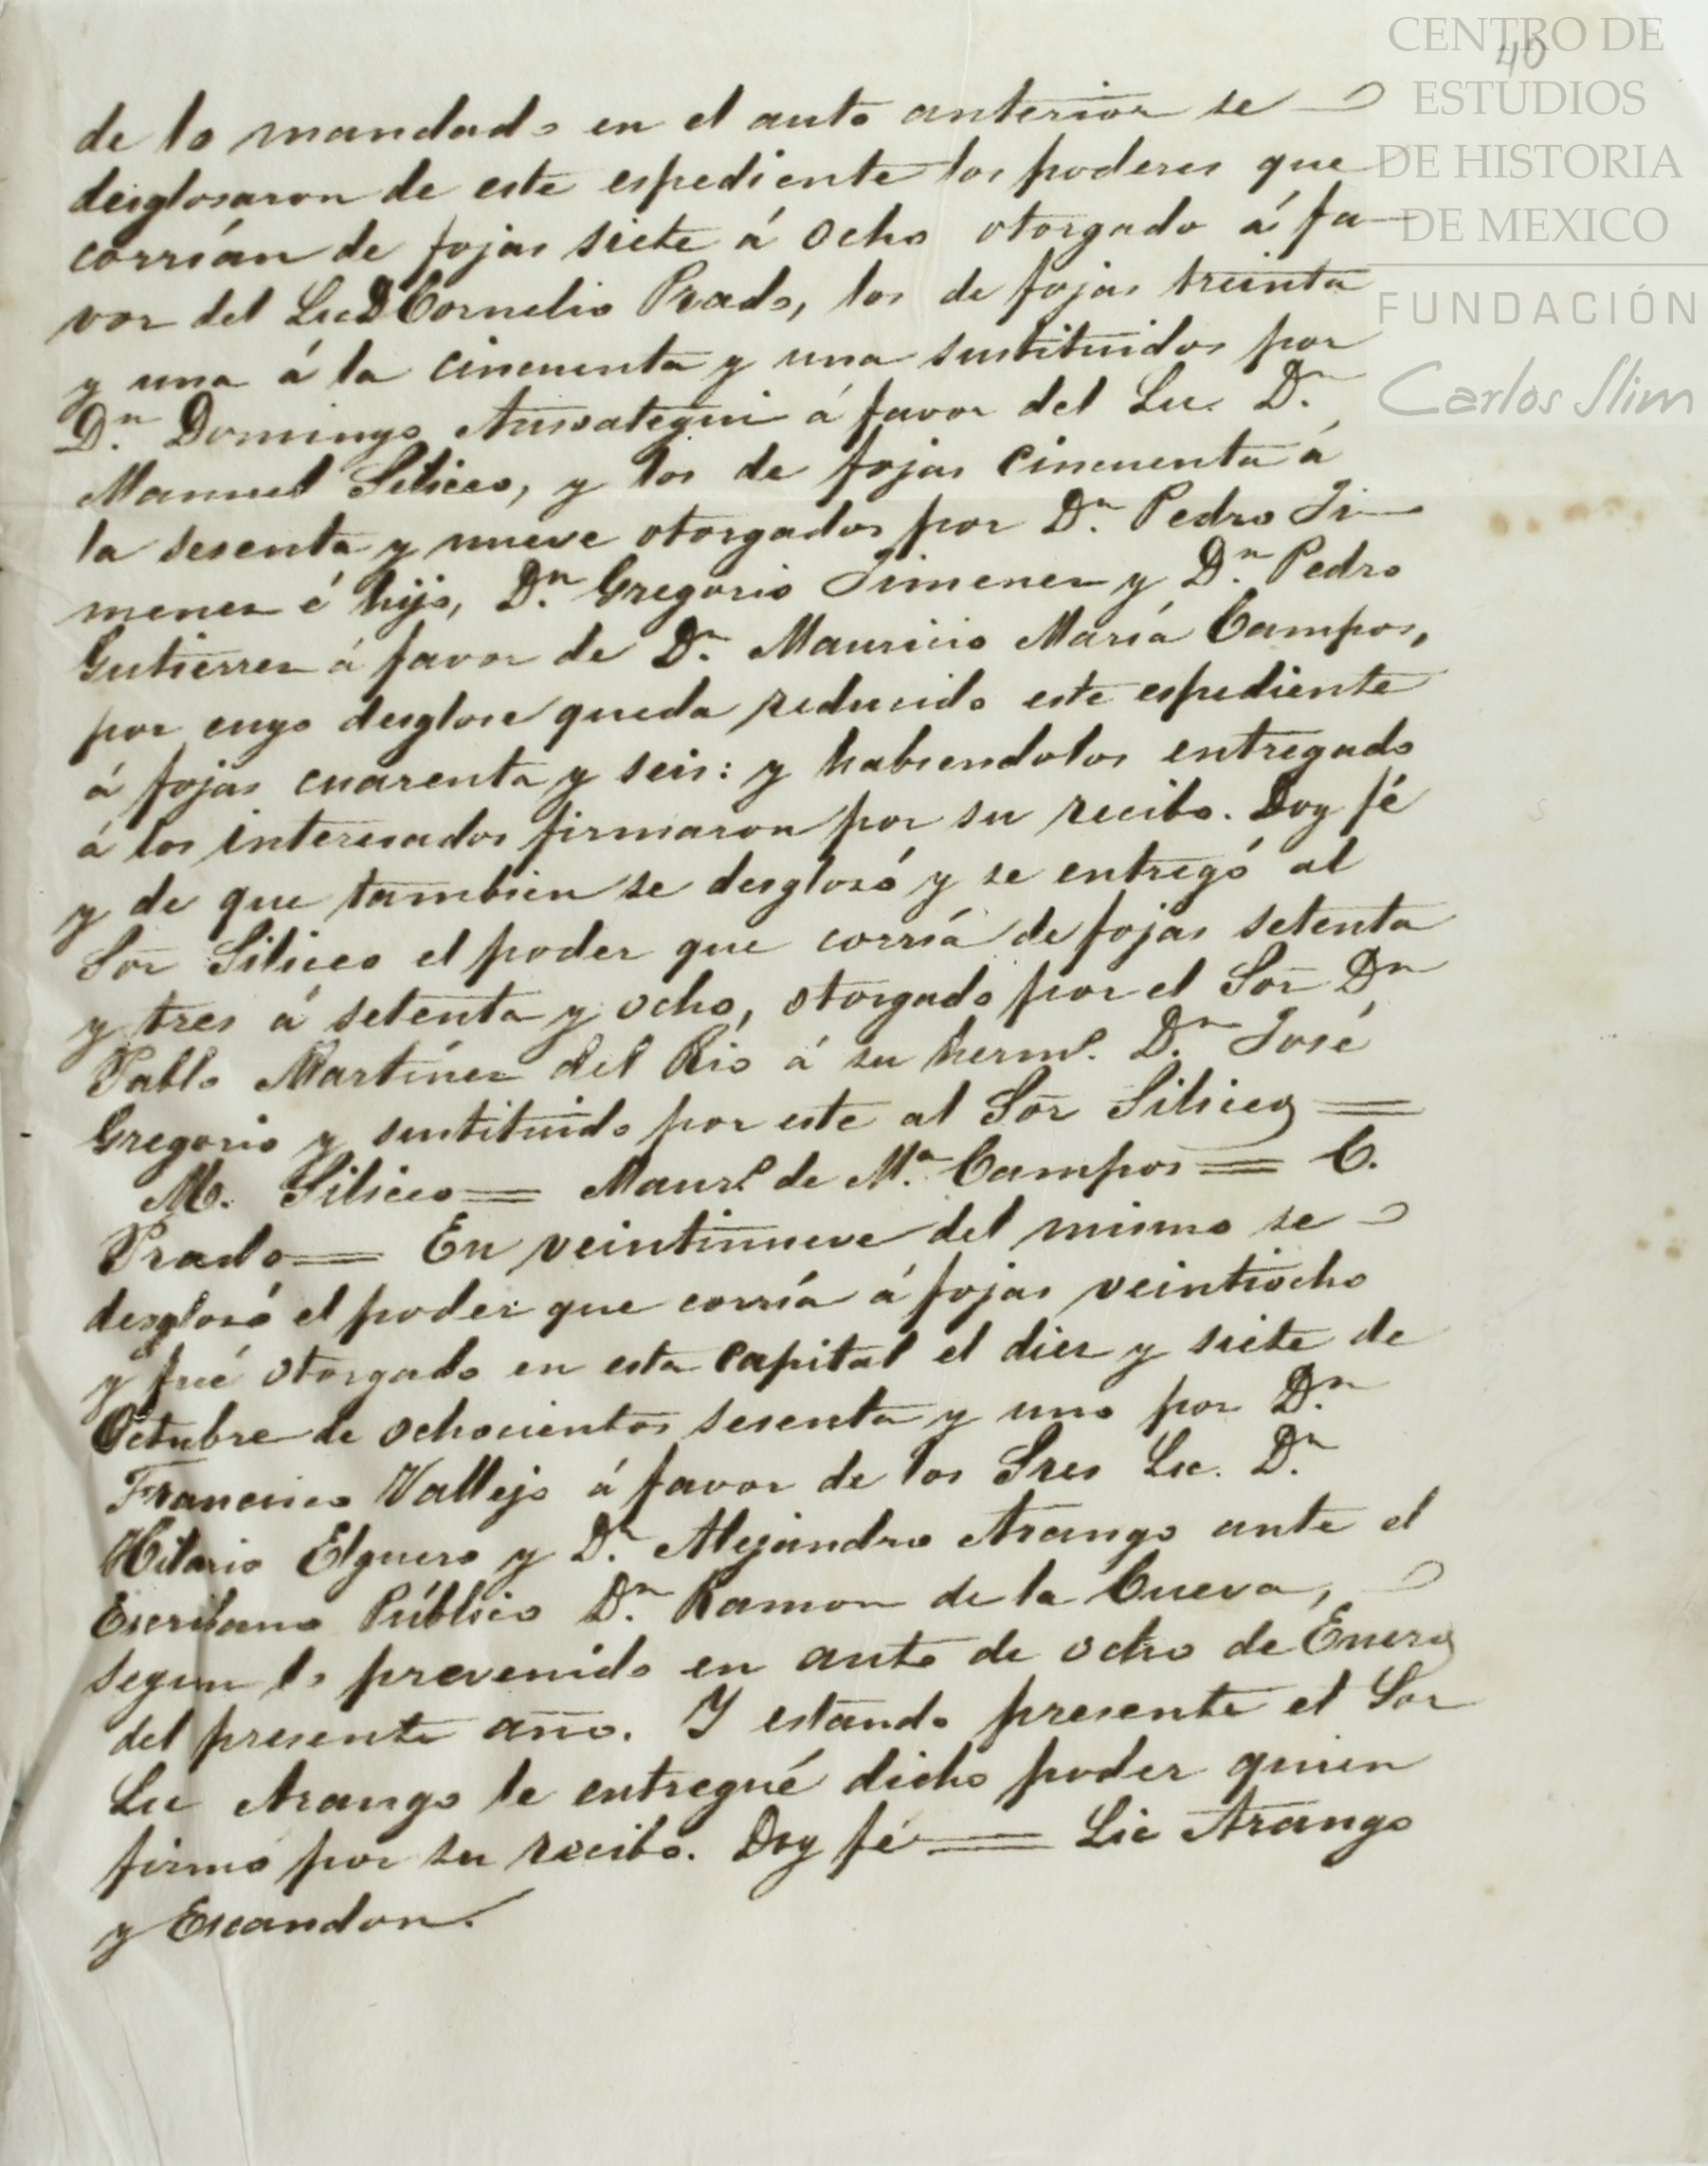 40
CENTRO DE
ESTUDIOS
DE HISTORIA
DE MEXICO
FUNDACIÓN
Carlos Slim
de lo mandado en el auto anterior se
desglosaron de este espediente los poderes que
corrían de fojas siete á ocho otorgado á fa
vor del Lic D Cornelio Prado, los de fojas treinta
y una á la cincuenta y una sustituidos por
Dn. Domingo Ansoategui á favor del Lic. Dn.
Manuel Siliceo, y los de fojas cincuenta á
la sesenta y nueve otorgados por Dn. Pedro Ji
menez é hijo, Dn. Gregorio Jimenez y Dn. Pedro
Gutierrez á favor de Dn. Mauricio María Campos,
por cuyo desglose queda reducido este espediente
á fojas cuarenta y seis: y habiendolos entregado
á los interesados firmaron por su recibo. Doy fé
y de que tambien se desglosó y se entregó al
Sor Siliceo el poder que corría de fojas setenta
y tres á setenta y ocho, otorgado por el Sor Dn
Pablo Martínez del Rio á su hermo. Dn. José
Gregorio y sustituido por este al Sor Siliceo =
M. Siliceo = Mauro. de Ma. Campos = C.
Prado = En veintinueve del mismo se
desglosó el poder que corría á fojas veintiocho
y fué otorgado en esta Capital el diez y siete de
Octubre de ochocientos sesenta y uno por Dn.
Francisco Vallejo á favor de los Sres Lic. Dn.
Hilario Elguero y Dn. Alejandro Arango ante el
Escribano Público Dn. Ramon de la Cueva,
segun lo prevenido en auto de ocho de Enero
del presente año. Y estando presente el Sor
Lic Arango le entregué dicho poder quien
firmó por su recibo. Doy fé = Lic Arango
y Escandon.